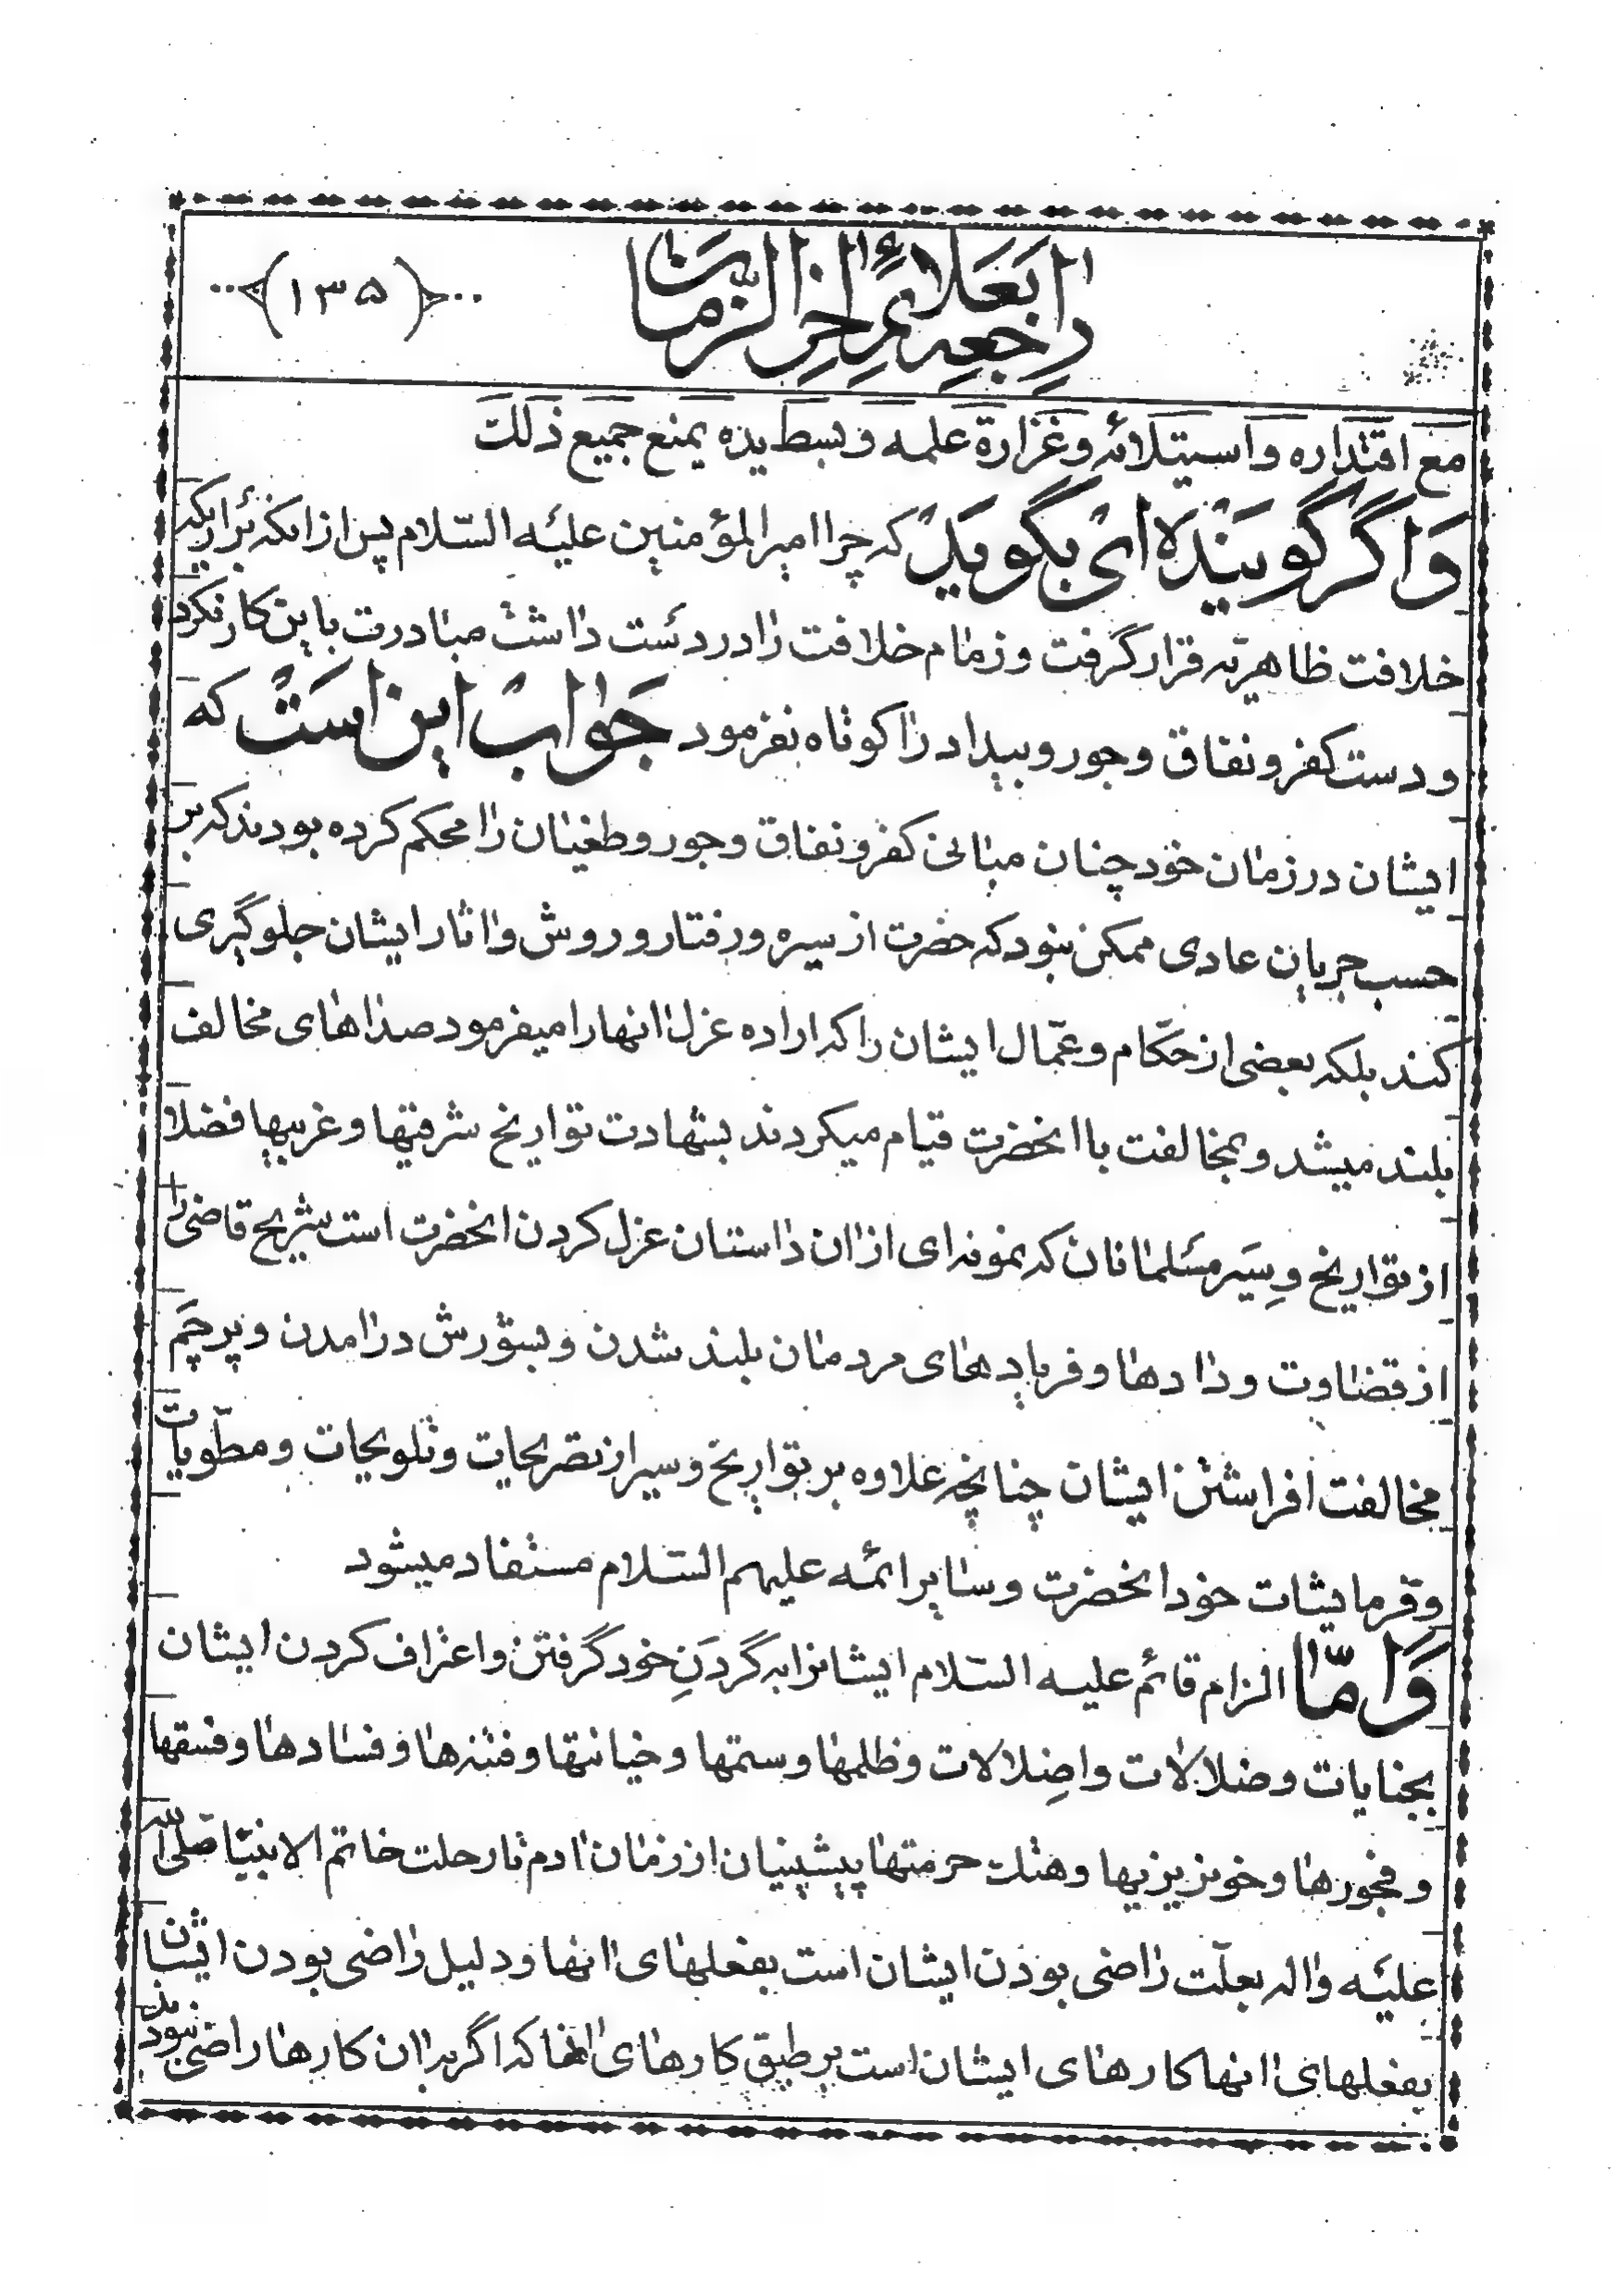 راجعه بعلائم اخر الزمان
(۱۳۵)
مع اقتداره و استیلائه و غزارة علمه و بسط یده یمنع جمیع ذلک
و اگر گوینده ای بگوید که چرا امیر المؤمنین علیه السلام پس از انکه بر اریکه
خلافت ظاهریه قرار گرفت و زمام خلافت را در دست داشت مبادرت باین کار نکرد
و دست کفر و نفاق و جور و بیداد را کوتاه نفرمود جواب این است که
ایشان در زمان خود چنان مبانی کفر و نفاق و جور و طغیان را محکم کرده بودند که بر
حسب جریان عادی ممکن نبود که حضرت از سیره و رفتار و روش و اثار ایشان جلوگیری
کند بلکه بعضی از حکام و عمال ایشان را که اراده عزل انها را میفرمود صداهای مخالف
بلند میشد و بمخالفت با انحضرت قیام میکردند بشهادت تواریخ شرقیها و غربیها فضلا
از تواریخ و سِیَر مسلمانان که نمونه ای از ان داستان عزل کردن انحضرت است شریح قاضی را
از قضاوت و دادها و فریادهای مردمان بلند شدن و بشورش در امدن و پرچم
مخالفت افراشتن ایشان چنانچه علاوه بر تواریخ و سیر از تصریحات و تلویحات و مطویات
و فرمایشات خود انحضرت و سایر ائمه علیهم السلام مستفاد میشود
و امّا الزام قائم علیه السلام ایشانرا به گردنِ خود گرفتن و اعتراف کردن ایشان
بجنایات و ضلالات و اضِلالات و ظلمها و ستمها و خیانتها و فتنه ها و فسادها و فسقها
و فجورها و خونریزیها و هتک حرمتها پیشینیان از زمان ادم تا رحلت خاتم الانبیا صلی الله
علیه و اله بعلت راضی بودن ایشان است بفعلهای انها و دلیل راضی بودن ایشان
بفعلهای انها کارهای ایشان است بر طبق کارهای انها که اگر بران کارها راضی نبودند